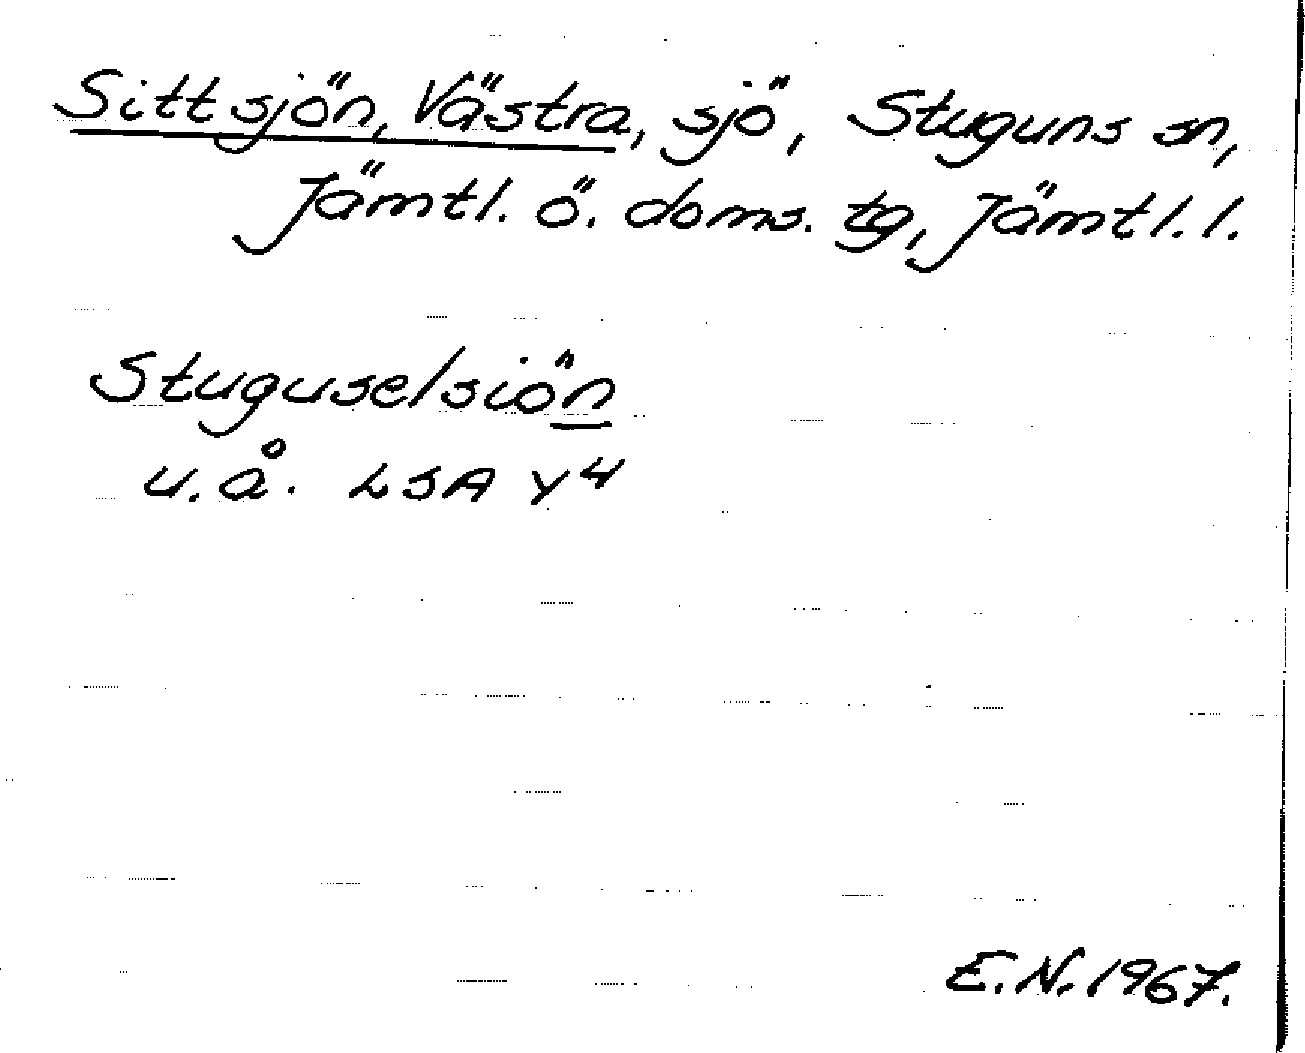 Sittsjön, Västra, sjö, Stuguns sn,
Jämtl. ö. doms. tg, Jämtl. l.
Stuguselsiön
u.å. LSA Y4
E.N. 1967.